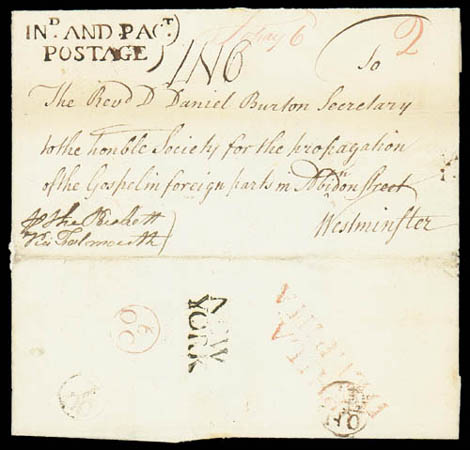 IN.D AND PAC.T
POSTAGE
1N6
2
To
The Revd Dr Daniel Burton Secretary
to the honble Society for the propagation
of the Gospel in foreign parts in Abidon Street
Westminster
Via Falmouth
NEW
YORK